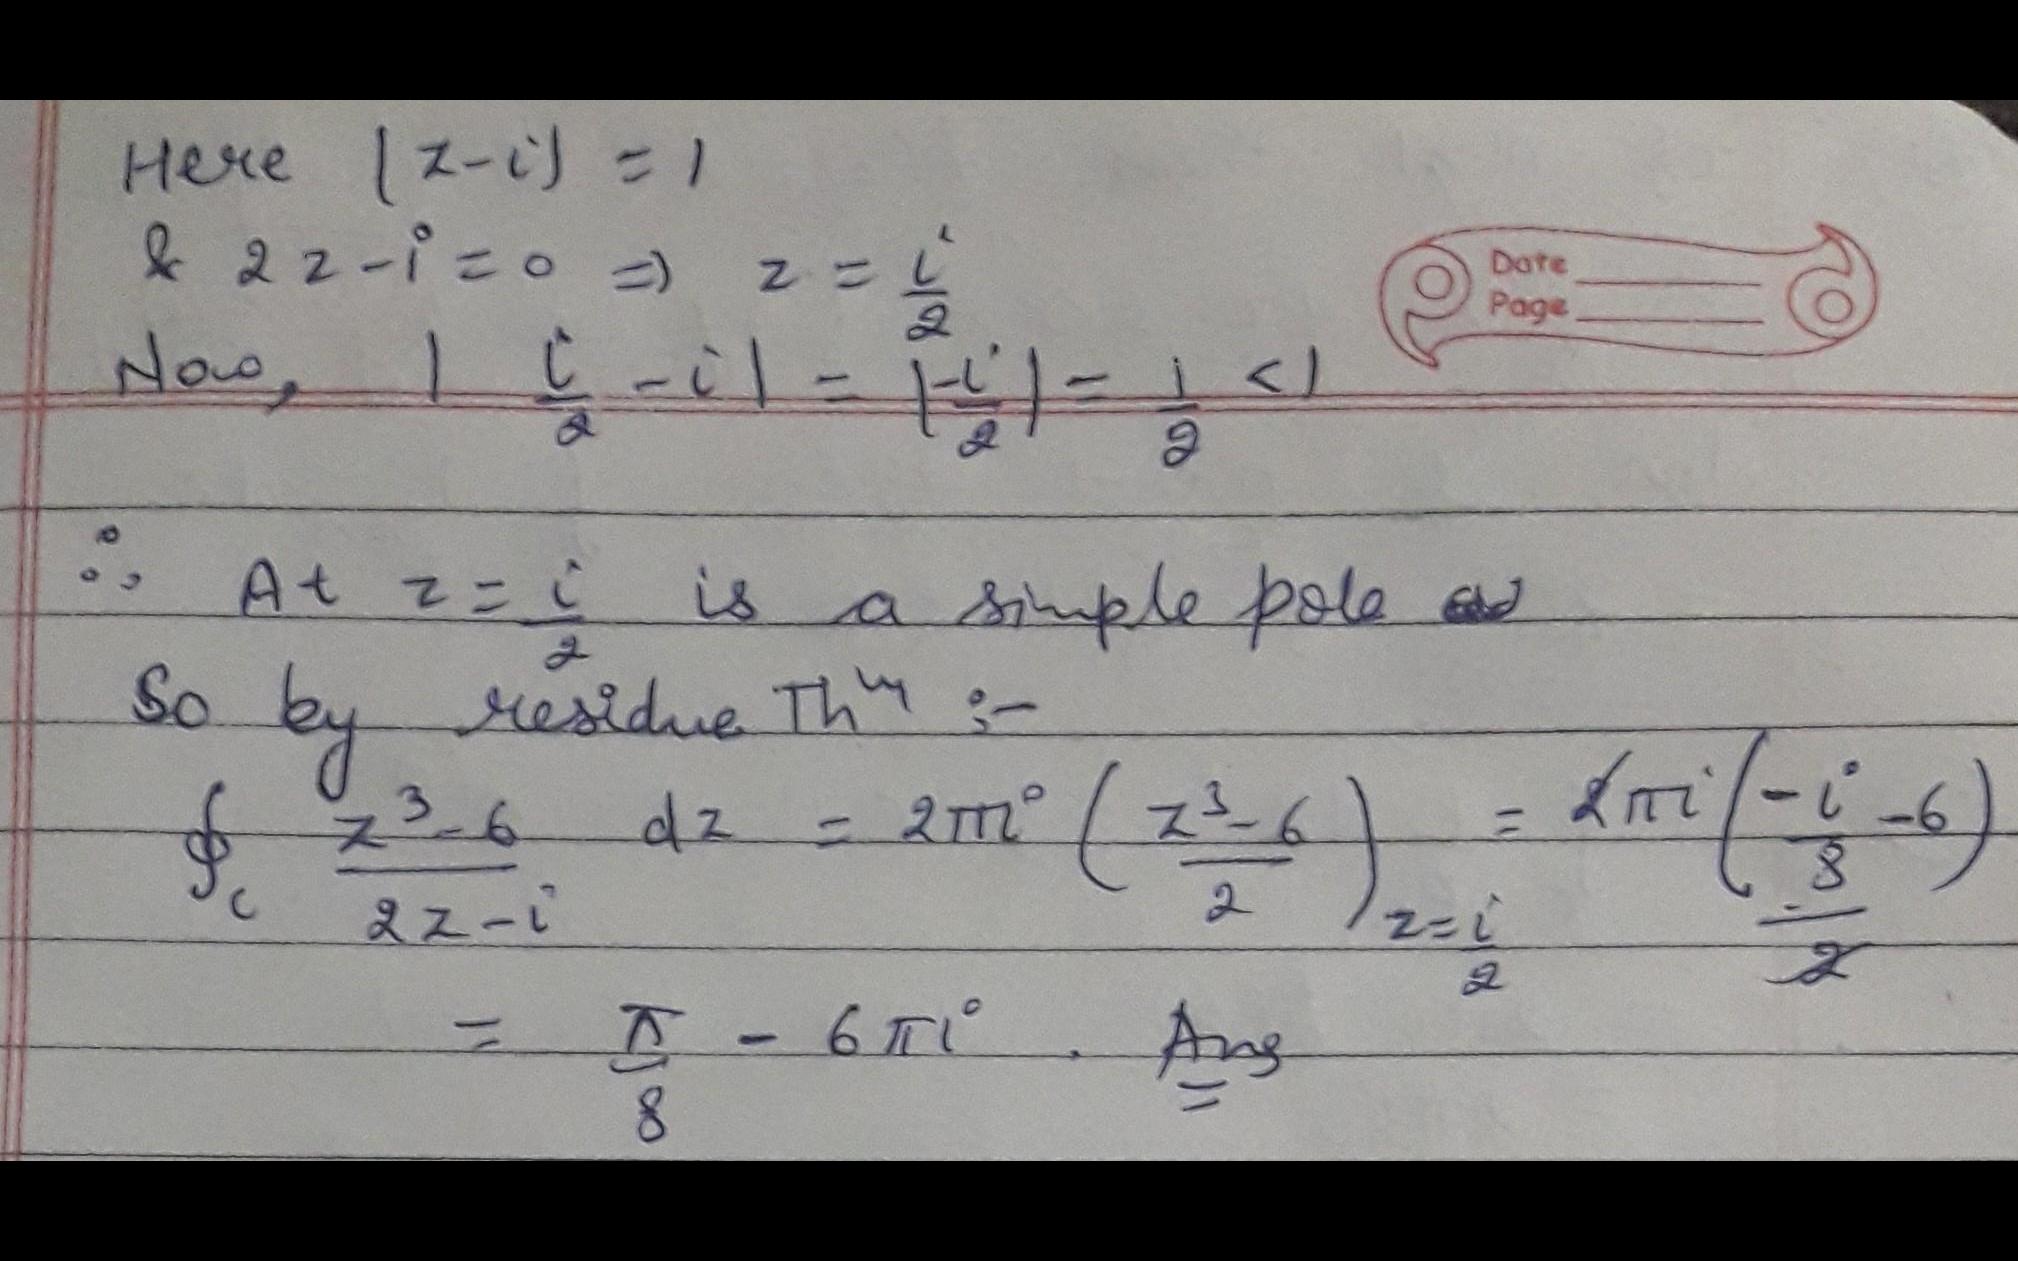 Here |z-i| = 1
& 2z-i=0 ⇒ z = i/2
Date
Page
Now, | i/2 - i| = |-i/2| = 1/2 < 1
∴ At z = i/2 is a simple pole
So by residue Thm :-
∮_C (z³-6)/(2z-i) dz = 2πi ((z³-6)/2)_{z=i/2} = 2πi (-i/8 -6)/2
= π/8 - 6πi . Ans